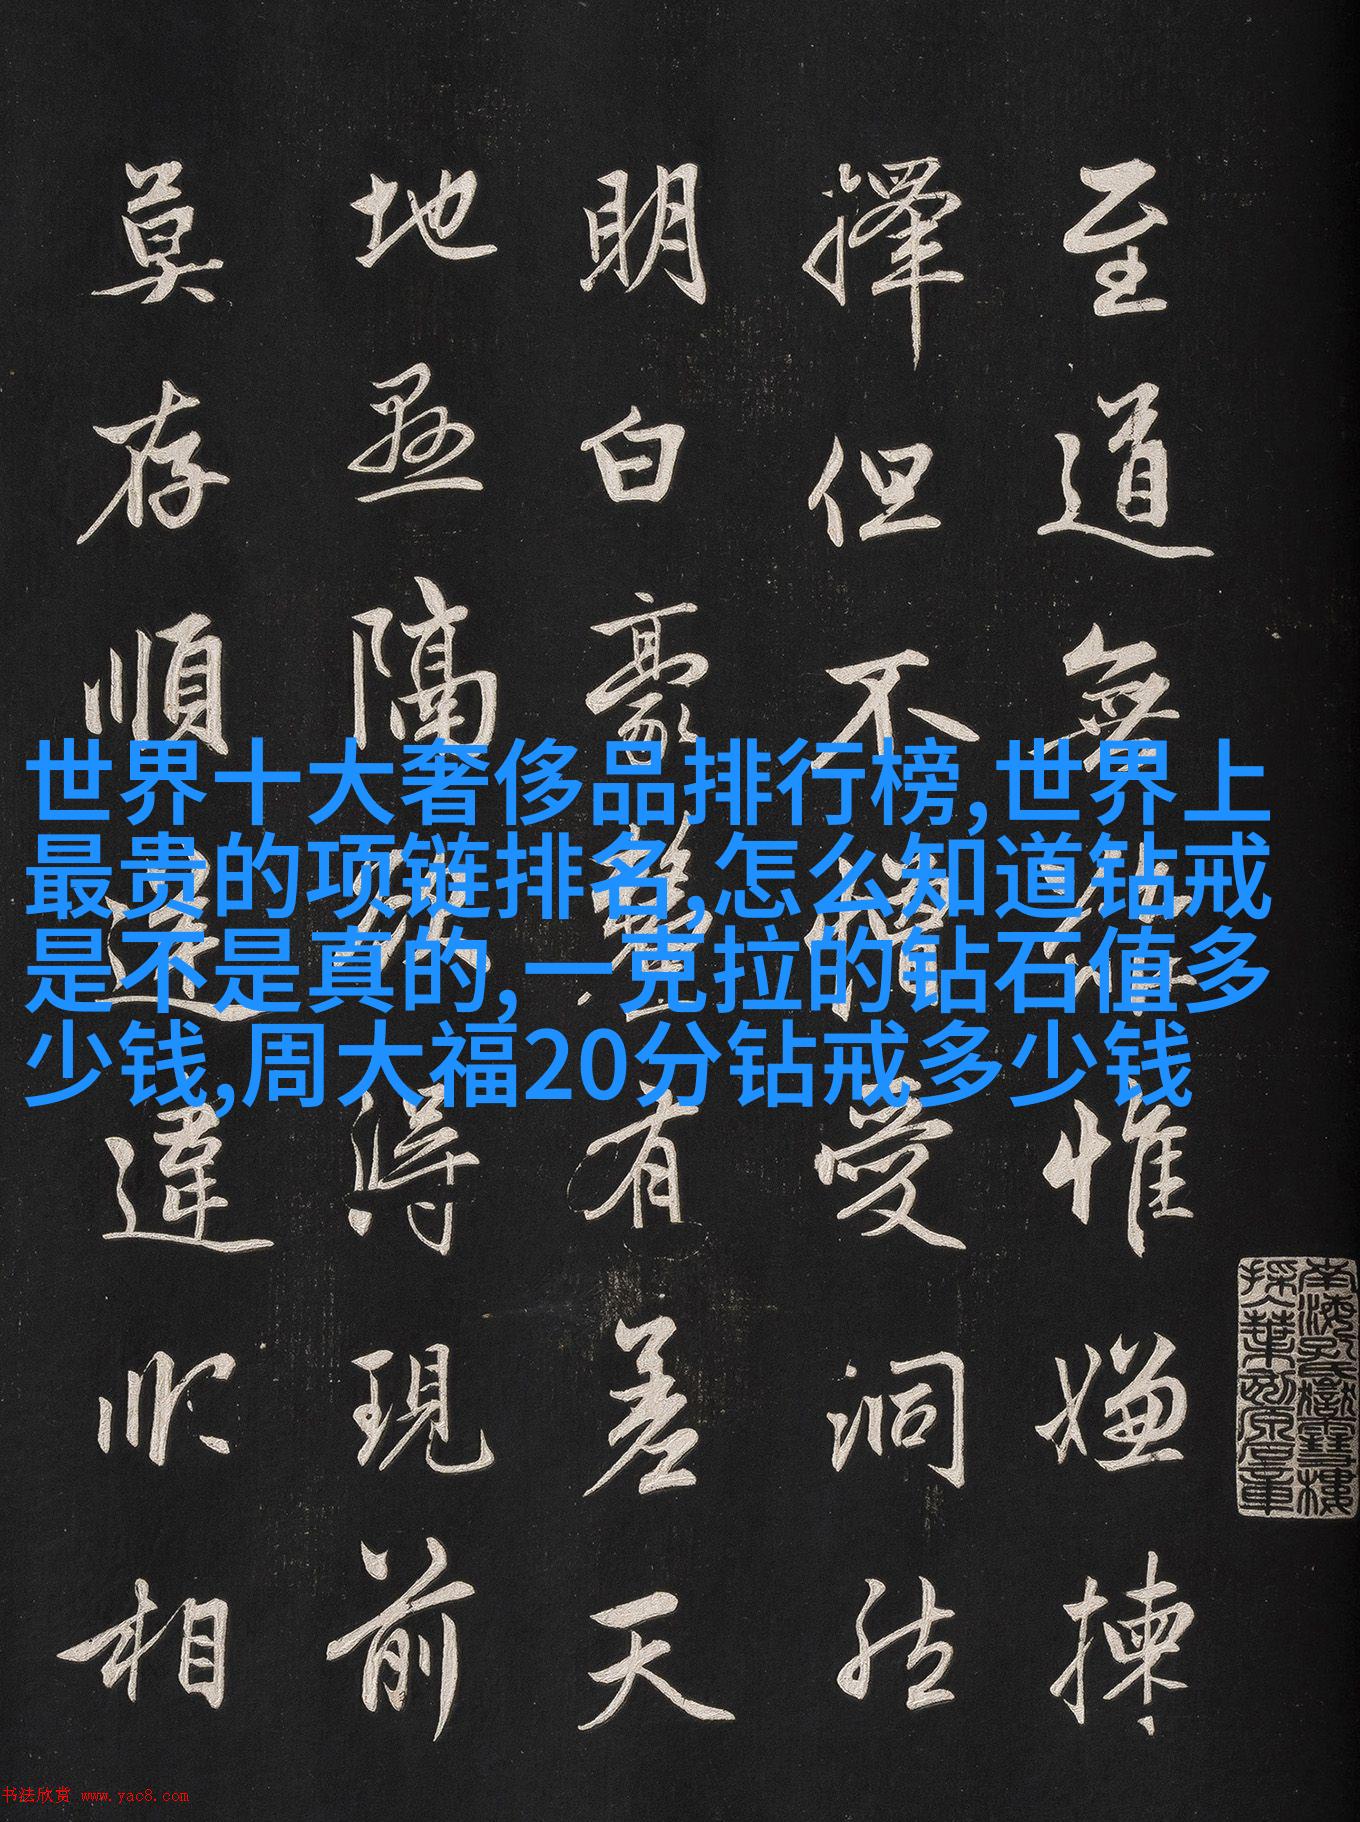 至道無惟嫌揀
擇但不愛洞然
明白豪有差天
地懸隔得現前
莫存順違順相
世界十大奢侈品排行榜,世界上
最贵的项链排名,怎么知道钻戒
是不是真的, 一克拉的钻石值多
少钱,周大福20分钻戒多少钱
书法欣赏 www.yac8.com